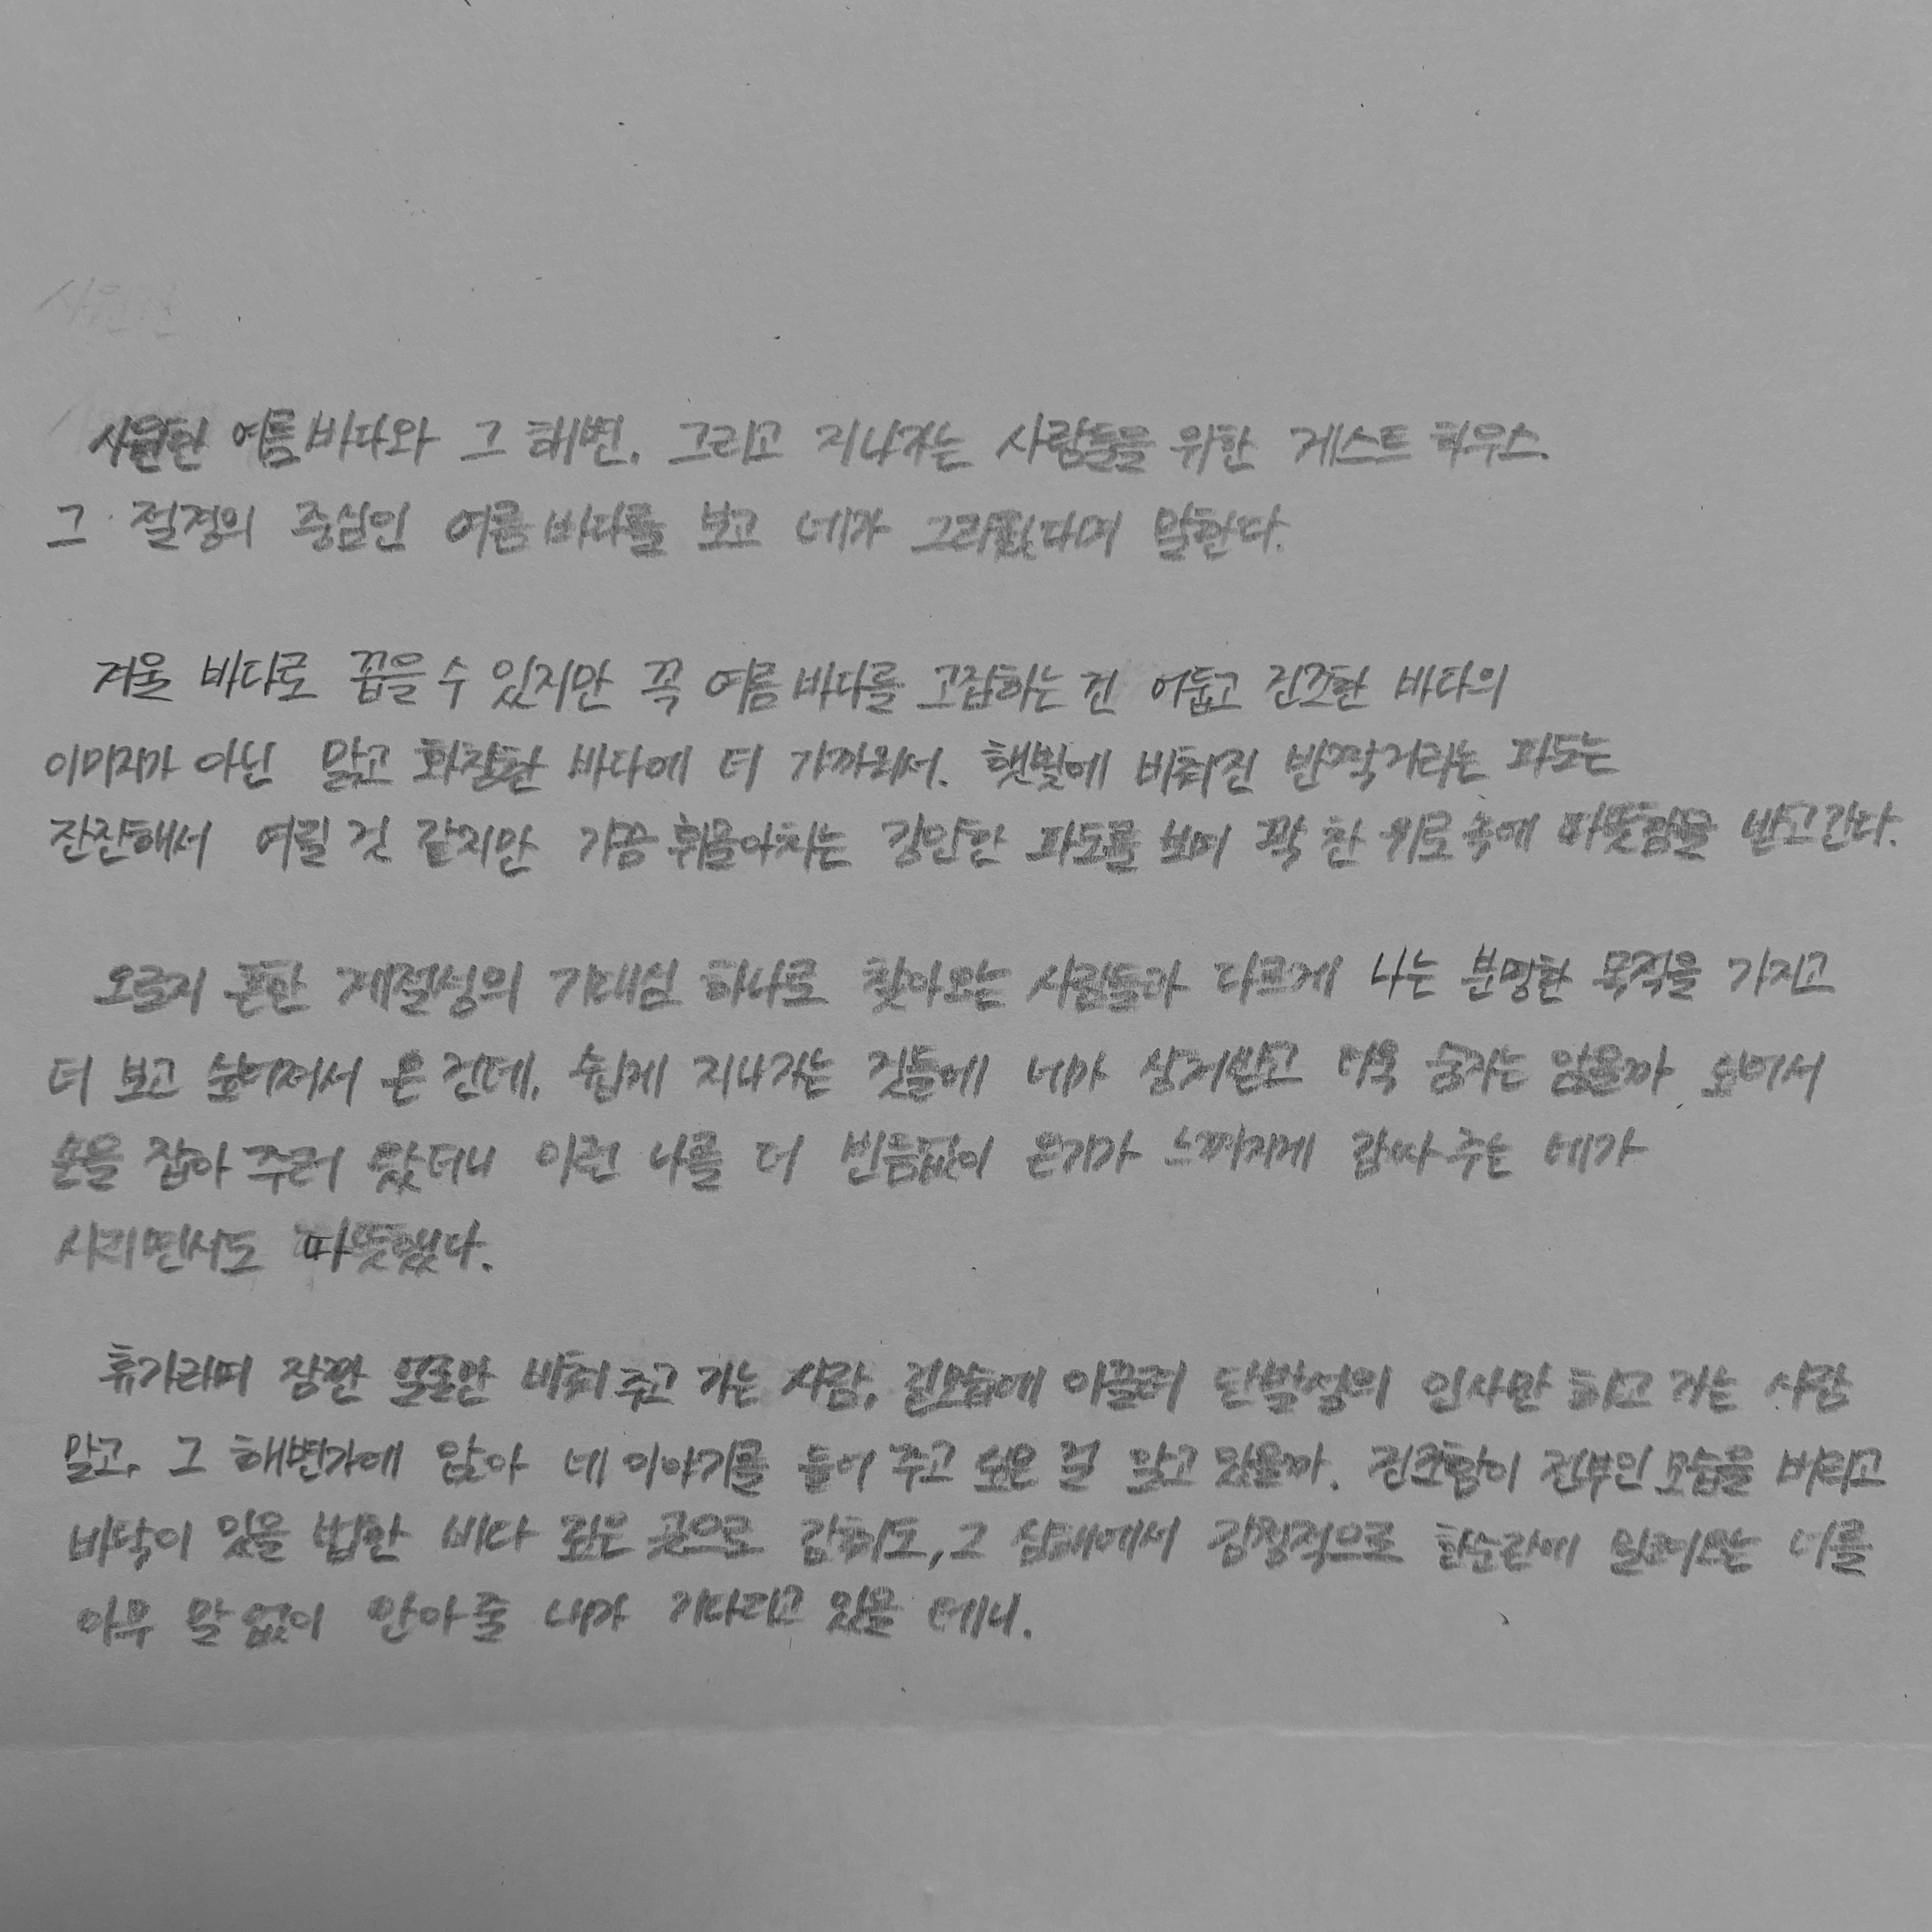 시원한
시원한 여름 바다와 그 해변. 그리고 지나가는 사람들을 위한 게스트 하우스.
그 절경의 중심인 여름 바다를 보고 네가 그리웠다며 말한다.
겨울 바다로 꼽을 수 있지만 꼭 여름 바다를 고집하는 건 어둡고 건조한 바다의
이미지가 아닌 맑고 화창한 바다에 더 가까워서. 햇빛에 비춰진 반짝거리는 파도는
잔잔해서 여릴 것 같지만 가끔 휘몰아치는 강인한 파도를 보며 꽉 찬 위로 속에 따뜻함을 받고 간다.
오로지 흔한 계절성의 기대심 하나로 찾아오는 사람들과 다르게 나는 분명한 목적을 가지고
더 보고 싶어져서 온 건데. 쉽게 지나가는 것들에 네가 상처받고 더욱 숨지는 않을까 싶어서
손을 잡아 주러 왔더니 이런 나를 더 빈틈없이 온기가 느껴지게 감싸 주는 네가
시리면서도 따뜻했다.
휴가리며 잠깐 얼굴만 비춰 주고 가는 사람, 겉모습에 이끌려 단발성의 인사만 하고 가는 사람
말고. 그 해변가에 앉아 네 이야기를 들어 주고 싶은 걸 알고 있을까. 건조함이 전부인 모습을 버리고
바닥이 있을 법한 바다 깊은 곳으로 감춰도, 그 심해에서 감정적으로 한순간에 밀려오는 너를
아무 말 없이 안아 줄 내가 기다리고 있을 테니.